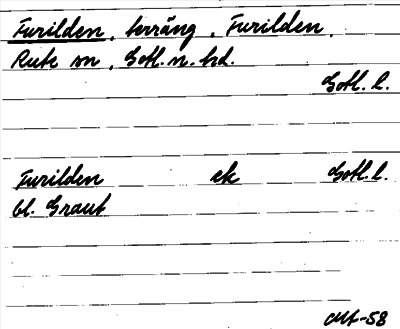 Furilden, terräng, Furilden,
Rute sn, Gotl. n. hd.
Gotl. l.
Furilden ek Gotl. l.
bl. Graut
-58